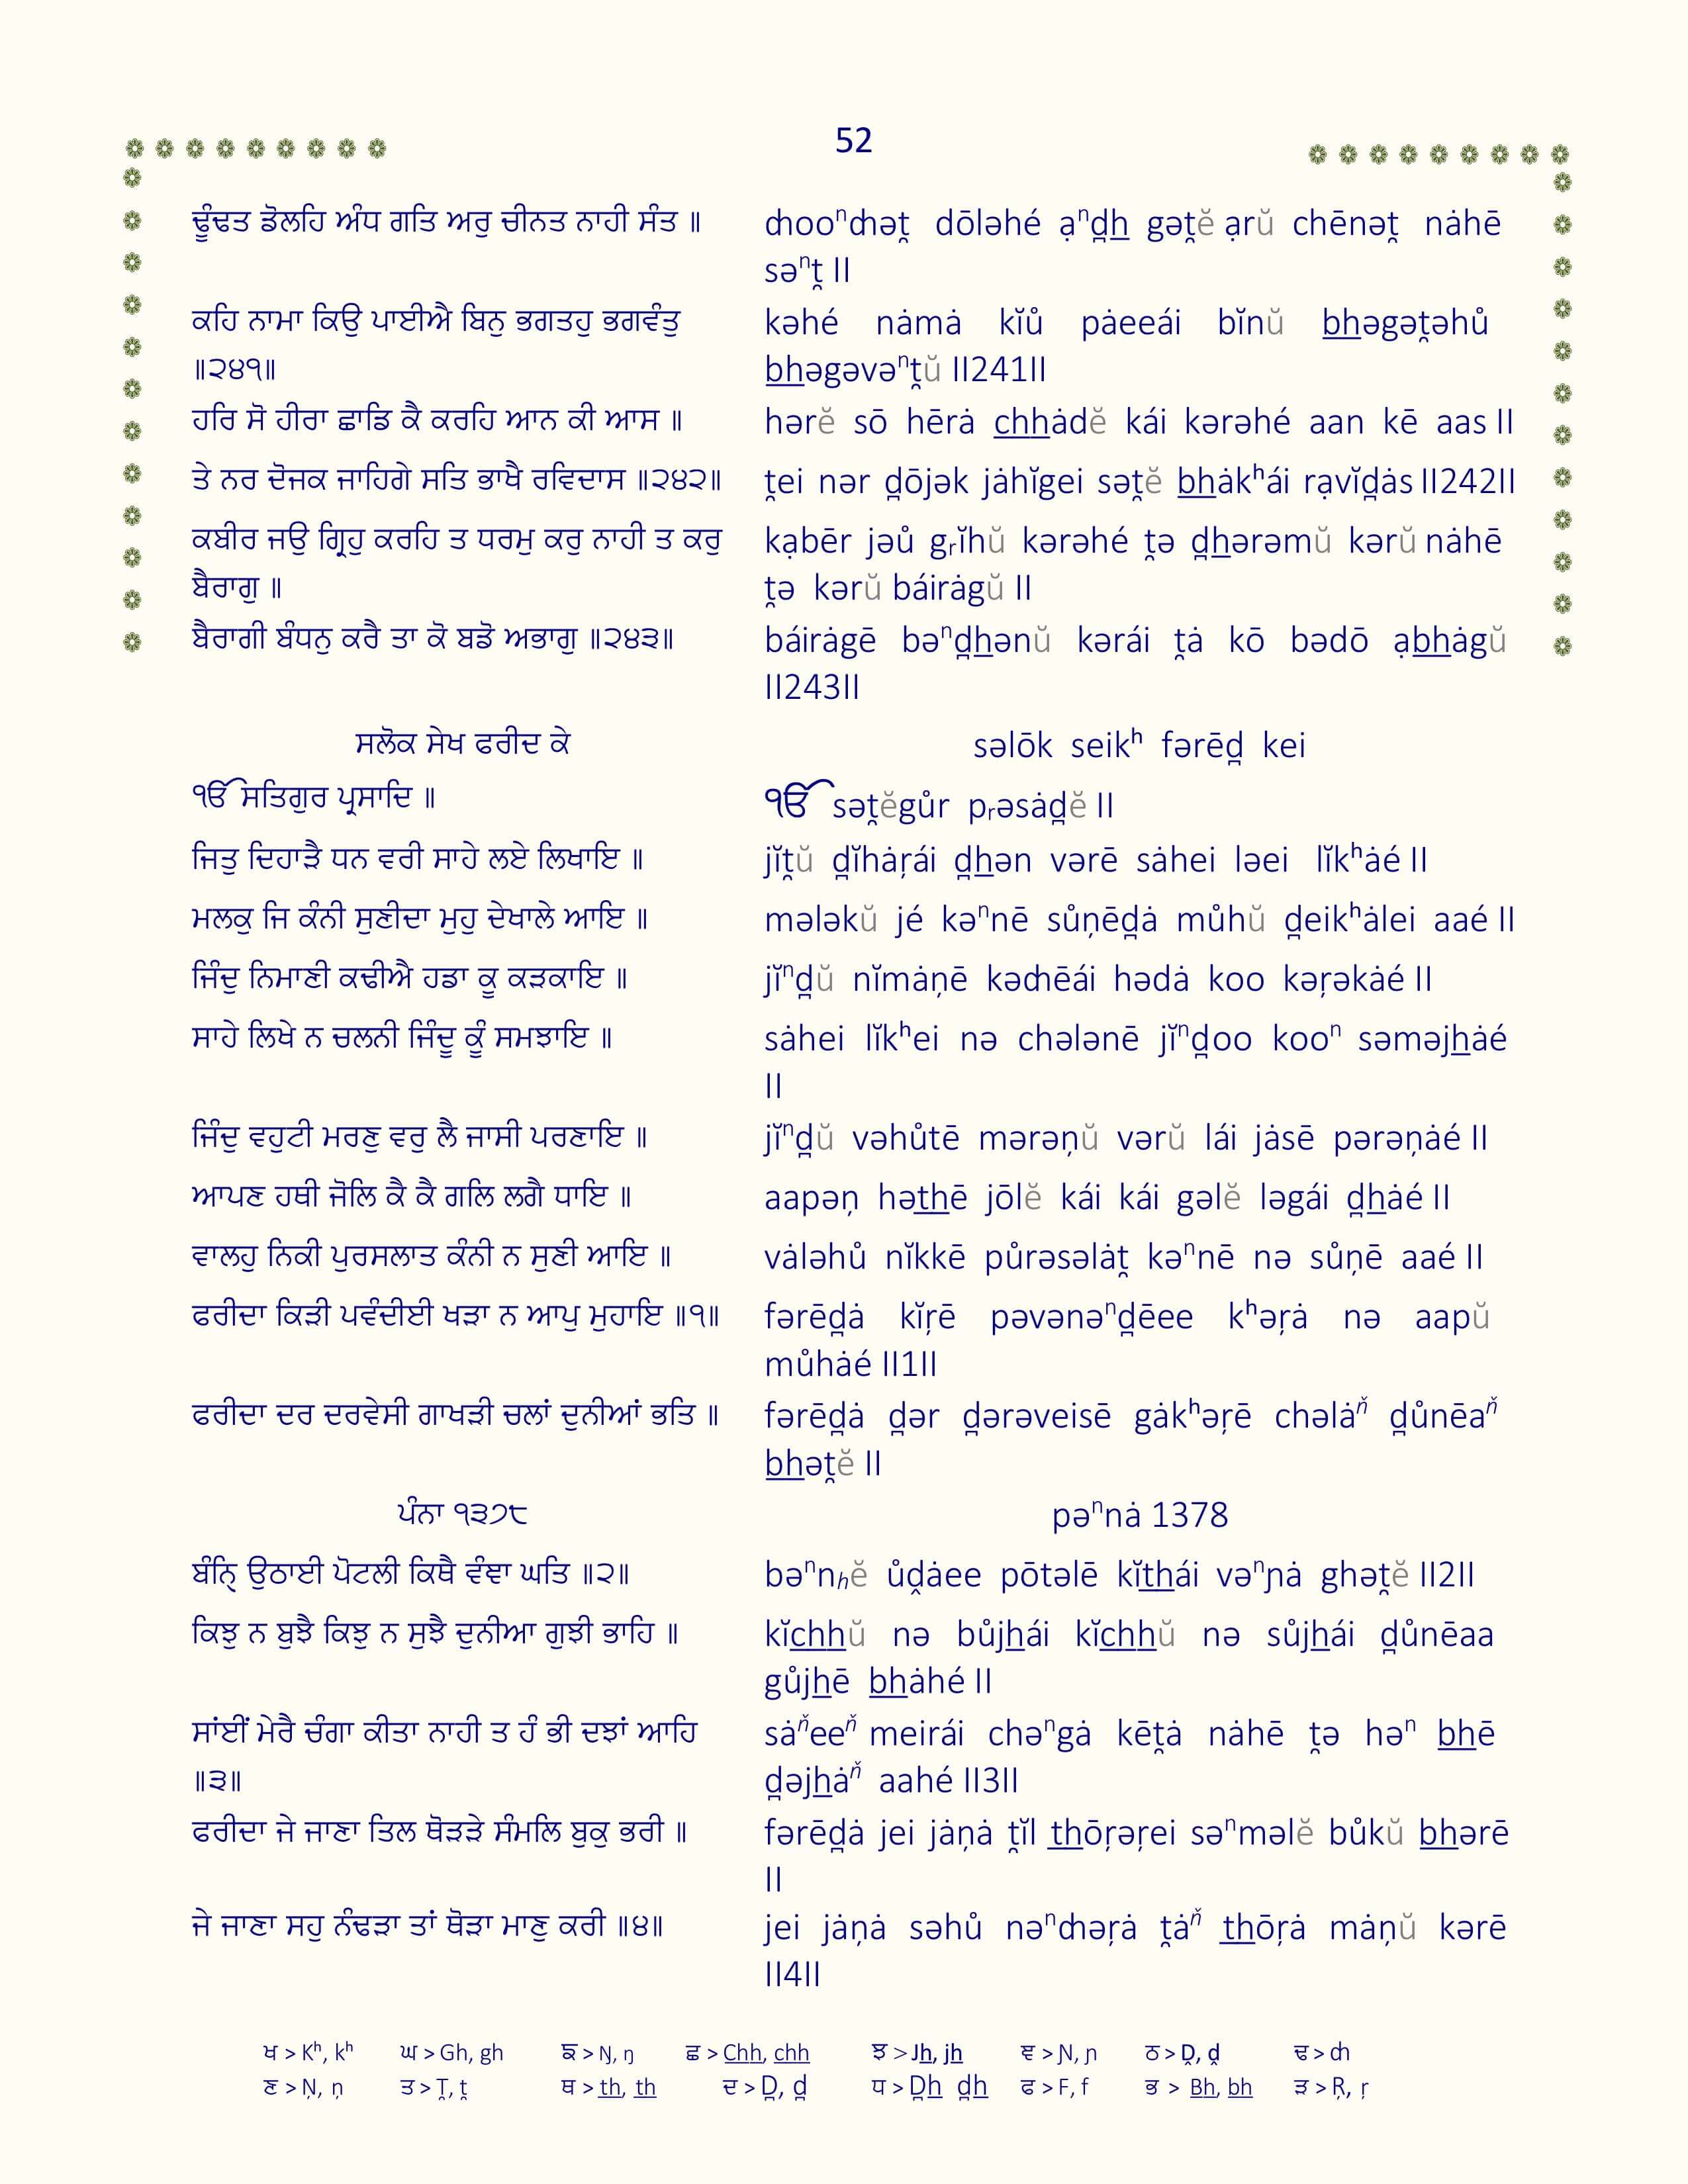 52
ਢੂੰਢਤ ਡੋਲਹਿ ਅੰਧ ਗਤਿ ਅਰੁ ਚੀਨਤ ਨਾਹੀ ਸੰਤ ॥
ȸooⁿȸət̯ dōləhé ạⁿd̯h gət̯ĕ ạrŭ chēnət̯ nȧhē
səⁿt̯ II
ਕਹਿ ਨਾਮਾ ਕਿਉ ਪਾਈਐ ਬਿਨੁ ਭਗਤਹੁ ਭਗਵੰਤੁ
॥੨੪੧॥
kəhé nȧmȧ kĭů pȧeeái bĭnŭ bhəgət̯əhů
bhəgəvəⁿt̯ŭ II241II
ਹਰਿ ਸੋ ਹੀਰਾ ਛਾਡਿ ਕੈ ਕਰਹਿ ਆਨ ਕੀ ਆਸ ॥
hərĕ sō hērȧ chhȧdĕ kái kərəhé aan kē aas II
ਤੇ ਨਰ ਦੋਜਕ ਜਾਹਿਗੇ ਸਤਿ ਭਾਖੈ ਰਵਿਦਾਸ ॥੨੪੨॥
t̯ei nər d̯ōjək jȧhĭgei sət̯ĕ bhȧkʰái rạvĭd̯ȧs II242II
ਕਬੀਰ ਜਉ ਗ੍ਰਿਹੁ ਕਰਹਿ ਤ ਧਰਮੁ ਕਰੁ ਨਾਹੀ ਤ ਕਰੁ
ਬੈਰਾਗੁ ॥
kạbēr jəů gᵣĭhŭ kərəhé t̯ə d̯hərəmŭ kərŭ nȧhē
t̯ə kərŭ báirȧgŭ II
ਬੈਰਾਗੀ ਬੰਧਨੁ ਕਰੈ ਤਾ ਕੋ ਬਡੋ ਅਭਾਗੁ ॥੨੪੩॥
báirȧgē bəⁿd̯hənŭ kərái t̯ȧ kō bədō ạbhȧgŭ
II243II
ਸਲੋਕ ਸੇਖ ਫਰੀਦ ਕੇ
səlōk seikʰ fərēd̯ kei
ੴ ਸਤਿਗੁਰ ਪ੍ਰਸਾਦਿ ॥
ੴ sət̯ĕgůr pᵣəsȧd̯ĕ II
ਜਿਤੁ ਦਿਹਾੜੈ ਧਨ ਵਰੀ ਸਾਹੇ ਲਏ ਲਿਖਾਇ ॥
jĭt̯ŭ d̯ĭhȧŗái d̯hən vərē sȧhei ləei lĭkʰȧé II
ਮਲਕੁ ਜਿ ਕੰਨੀ ਸੁਣੀਦਾ ਮੁਹੁ ਦੇਖਾਲੇ ਆਇ ॥
mələkŭ jé kəⁿnē sůņēd̯ȧ můhŭ d̯eikʰȧlei aaé II
ਜਿੰਦੁ ਨਿਮਾਣੀ ਕਢੀਐ ਹਡਾ ਕੂ ਕੜਕਾਇ ॥
jĭⁿd̯ŭ nĭmȧņē kəȸēái hədȧ koo kəŗəkȧé II
ਸਾਹੇ ਲਿਖੇ ਨ ਚਲਨੀ ਜਿੰਦੂ ਕੂੰ ਸਮਝਾਇ ॥
sȧhei lĭkʰei nə chələnē jĭⁿd̯oo kooⁿ səməjhȧé
II
ਜਿੰਦੁ ਵਹੁਟੀ ਮਰਣੁ ਵਰੁ ਲੈ ਜਾਸੀ ਪਰਣਾਇ ॥
jĭⁿd̯ŭ vəhůtē mərəņŭ vərŭ lái jȧsē pərəņȧé II
ਆਪਣ ਹਥੀ ਜੋਲਿ ਕੈ ਕੈ ਗਲਿ ਲਗੈ ਧਾਇ ॥
aapəņ həthē jōlĕ kái kái gəlĕ ləgái d̯hȧé II
ਵਾਲਹੁ ਨਿਕੀ ਪੁਰਸਲਾਤ ਕੰਨੀ ਨ ਸੁਣੀ ਆਇ ॥
vȧləhů nĭkkē půrəsəlȧt̯ kəⁿnē nə sůņē aaé II
ਫਰੀਦਾ ਕਿੜੀ ਪਵੰਦੀਈ ਖੜਾ ਨ ਆਪੁ ਮੁਹਾਇ ॥੧॥
fərēd̯ȧ kĭŗē pəvənəⁿd̯ēee kʰəŗȧ nə aapŭ
můhȧé II1II
ਫਰੀਦਾ ਦਰ ਦਰਵੇਸੀ ਗਾਖੜੀ ਚਲਾਂ ਦੁਨੀਆਂ ਭਤਿ ॥
fərēd̯ȧ d̯ər d̯ərəveisē gȧkʰəŗē chəlȧň d̯ůnēaň
bhət̯ĕ II
ਪੰਨਾ ੧੩੭੮
pəⁿnȧ 1378
ਬੰਨ੍ਹਿ ਉਠਾਈ ਪੋਟਲੀ ਕਿਥੈ ਵੰਞਾ ਘਤਿ ॥੨॥
bəⁿnₕĕ ůḓȧee pōtəlē kĭthái vəⁿɲȧ ghət̯ĕ II2II
ਕਿਝੁ ਨ ਬੁਝੈ ਕਿਝੁ ਨ ਸੁਝੈ ਦੁਨੀਆ ਗੁਝੀ ਭਾਹਿ ॥
kĭchhŭ nə bůjhái kĭchhŭ nə sůjhái d̯ůnēaa
gůjhē bhȧhé II
ਸਾਂਈਂ ਮੇਰੈ ਚੰਗਾ ਕੀਤਾ ਨਾਹੀ ਤ ਹੰ ਭੀ ਦਝਾਂ ਆਹਿ
॥੩॥
sȧňeeň meirái chəⁿgȧ kēt̯ȧ nȧhē t̯ə həⁿ bhē
d̯əjhȧň aahé II3II
ਫਰੀਦਾ ਜੇ ਜਾਣਾ ਤਿਲ ਥੋੜੜੇ ਸੰਮਲਿ ਬੁਕੁ ਭਰੀ ॥
fərēd̯ȧ jei jȧņȧ t̯ĭl thōŗəŗei səⁿməlĕ bůkŭ bhərē
II
ਜੇ ਜਾਣਾ ਸਹੁ ਨੰਢੜਾ ਤਾਂ ਥੋੜਾ ਮਾਣੁ ਕਰੀ ॥੪॥
jei jȧņȧ səhů nəⁿȸəŗȧ t̯ȧň thōŗȧ mȧņŭ kərē
II4II
ਖ > Kʰ, kʰ ਘ > Gh, gh ਙ > Ŋ, ŋ ਛ > Chh, chh ਝ > Jh, jh ਞ > Ɲ, ɲ ਠ > Ḓ, ḓ ਢ > ȸ
ਣ > Ņ, ņ ਤ > T̯, t̯ ਥ > th, th ਦ > D̯, d̯ ਧ > D̯h d̯h ਫ > F, f ਭ > Bh, bh ੜ > Ŗ, ŗ